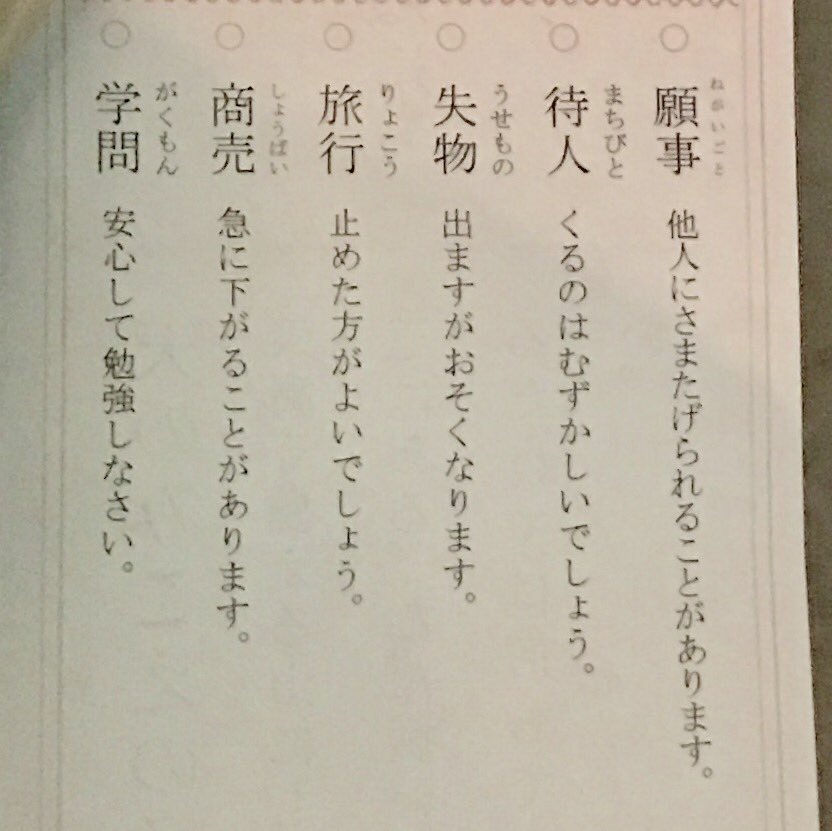 ○ 願事 他人にさまたげられることがあります。
ねがいごと
○ 待人 くるのはむずかしいでしょう。
まちびと
○ 失物 出ますがおそくなります。
うせもの
○ 旅行 止めた方がよいでしょう。
りょこう
○ 商売 急に下がることがあります。
しょうばい
○ 学問 安心して勉強しなさい。
がくもん